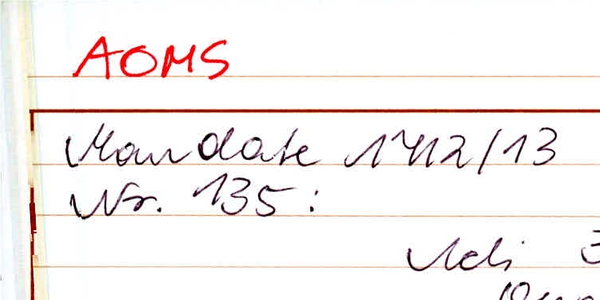 AOMS
Mandate 1712/13
Nr. 135:
Adi 3